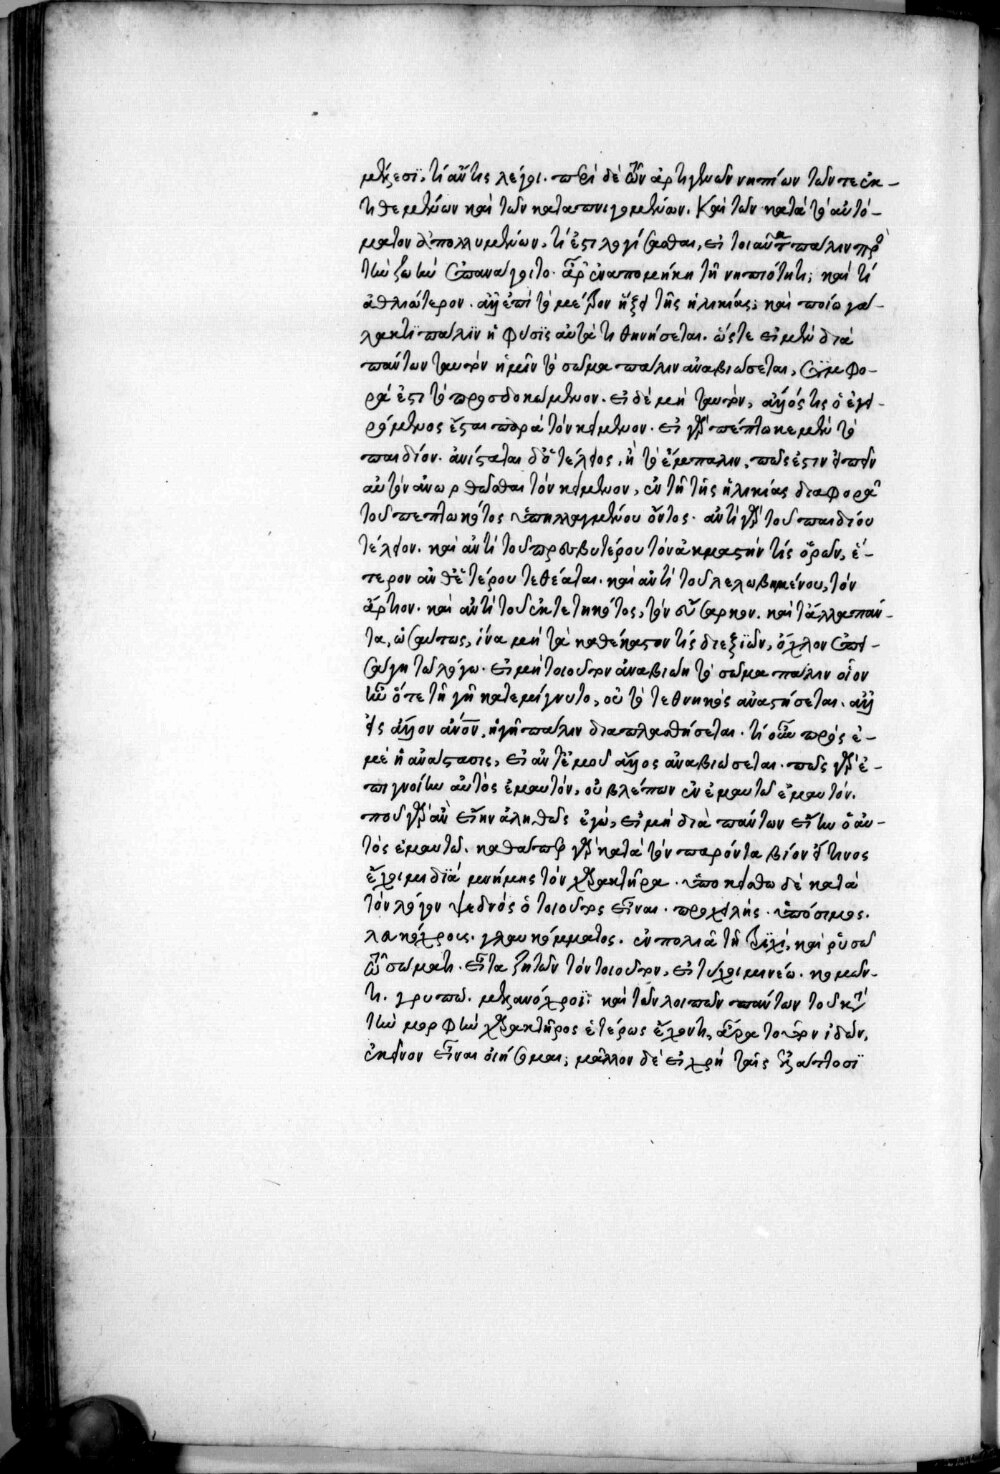 μήξεσι, τί ἄν τις λέγοι. περὶ δὲ τῶν ἀρτιγενῶν νηπίων τῶν τε ἐκ-
τιθεμένων καὶ τῶν καταπνιγομένων. καὶ τῶν κατὰ τὸ αὐτό-
ματον ἀπολλυμένων, τί ἐστι λογίσασθαι, εἰ τοιαῦτα πάλιν πρὸς
τὴν ζωὴν ἐπανάγοιτο. ἆρ' ἐναπομένει τῇ νηπιότητι; καὶ τί
ἀθλιώτερον. ἀλλ' ἐπὶ τὸ μέτρον ἥξει τῆς ἡλικίας; καὶ ποίῳ γά-
λακτι πάλιν ἡ φύσις αὐτὰ τιθηνήσεται. ὥστε εἰ μὲν διὰ
πάντων ταυτὸν ἡμῖν τὸ σῶμα πάλιν ἀναβιώσεται, συμφο-
ρά ἐστι τὸ προσδοκώμενον. εἰ δὲ μὴ ταυτὸν, ἄλλός τις ὁ ἐγει-
ρόμενος ἔσται παρὰ τὸν κείμενον. εἰ γὰρ πέπτωκε μὲν τὸ
παιδίον. ἀνίσταται δὲ τέλειος, ἢ τὸ ἔμπαλιν, πῶς ἔστιν εἰπεῖν
αὐτὸν ἀνωρθῶσθαι τὸν κείμενον, ἐν τῇ τῆς ἡλικίας διαφορᾷ
τοῦ πεπτωκότος ὑπηλλαγμένου ὄντος. ἀντὶ γὰρ τοῦ παιδίου
τέλειον. καὶ ἀντὶ τοῦ πρεσβυτέρου τὸν ἀκμαστήν τις ὁρῶν, ἕ-
τερον ἀνθ' ἑτέρου τεθέαται. καὶ ἀντὶ τοῦ λελωβημένου, τὸν
ἄρτιον. καὶ ἀντὶ τοῦ ἐκτετηκότος, τὸν εὔσαρκον. καὶ τἄλλα πάν-
τα, ὡσαύτως, ἵνα μὴ τὰ καθέκαστόν τις διεξιὼν, ὄχλον ἐπει-
σάγη τῷ λόγῳ. εἰ μὴ τοιοῦτον ἀναβιώη τὸ σῶμα πάλιν οἷον
ἦν ὅτε τῇ γῇ κατεμίγνυτο, οὐ τὸ τεθνηκὸς ἀναστήσεται. ἀλλ'
εἰς ἄλλον ἄνον, ἡ γῆ πάλιν διαπλασθήσεται. τί οὖν πρὸς ἐ-
μὲ ἡ ἀνάστασις, εἰ ἀντ' ἐμοῦ ἄλλος ἀναβιώσεται. πῶς γὰρ ἐ-
πιγνοίην αὐτὸς ἐμαυτὸν, οὐ βλέπων ἐν ἐμαυτῷ ἐμαυτόν.
ποῦ γὰρ ἂν εἴην ἀληθῶς ἐγὼ, εἰ μὴ διὰ πάντων εἴην ὁ αὐ-
τὸς ἐμαυτῷ. καθάπερ γὰρ κατὰ τὸν παρόντα βίον εἴ τινος
ἔχοιμι διὰ μνήμης τὸν χαρακτῆρα. ὑποκείσθω δὲ κατὰ
τὸν λόγον ψεδνὸς ὁ τοιοῦτος εἶναι. προχειλής. ὑπόσιμος.
λευκόχρους. γλαυκόμματος. ἐν πολιᾷ τῇ τριχὶ, καὶ ῥυσῷ
τῷ σώματι. εἶτα ζητῶν τὸν τοιοῦτον, ἐντύχοιμι νέῳ. κομῶν-
τι. γρυπῷ. μελανόχροϊ. καὶ τῶν λοιπῶν πάντων τοῦ κατὰ
τὴν μορφὴν χαρακτῆρος ἑτέρως ἔχοντι, ἆρα τοῦτον ἰδὼν,
ἐκεῖνον εἶναι οἰήσομαι; μᾶλλον δὲ εἰ χρὴ ταῖς ἐλάττοσι